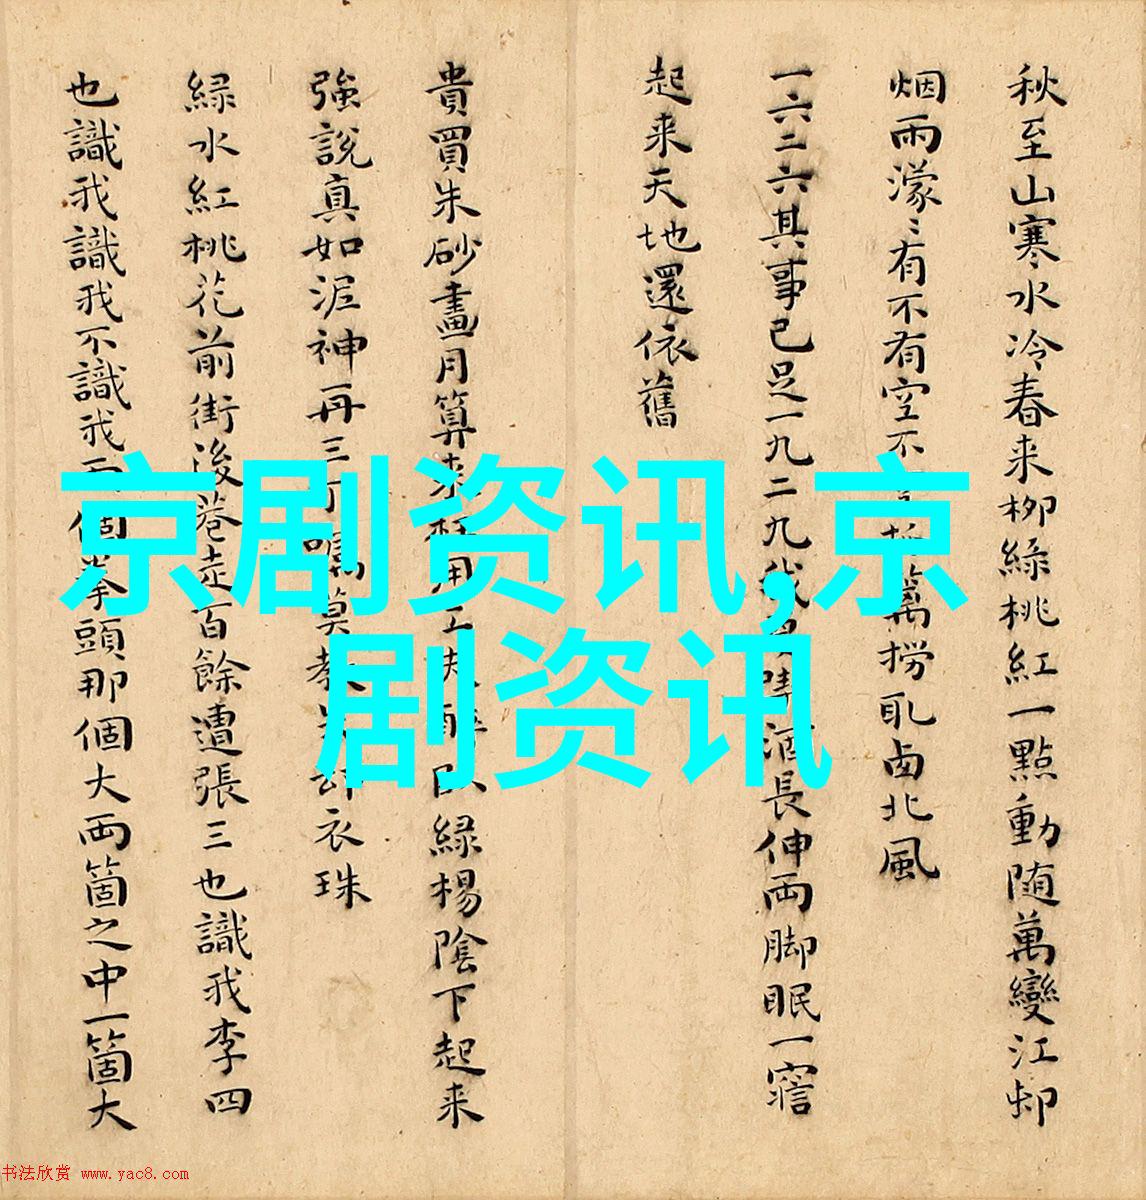 秋至山寒水冷春来柳綠桃紅一點動随萬變江邨
烟雨濛〻有不有空不萬撈𠃵卤北風
一六二六其事已足一九二九我酒長伸両脚眠一寤
起来天地還依舊
貴買朱砂畫月算来枉用工夫醉臥緑楊陰下起来
強說真如泥神再三丁囑莫教衣珠
緑水紅桃花前街後巷走百餘遭張三也識我李四
也識我識我不識我両個拳頭那個大両箇之中一箇大
京剧资讯,京
剧资讯
书法欣赏 www.yac8.com